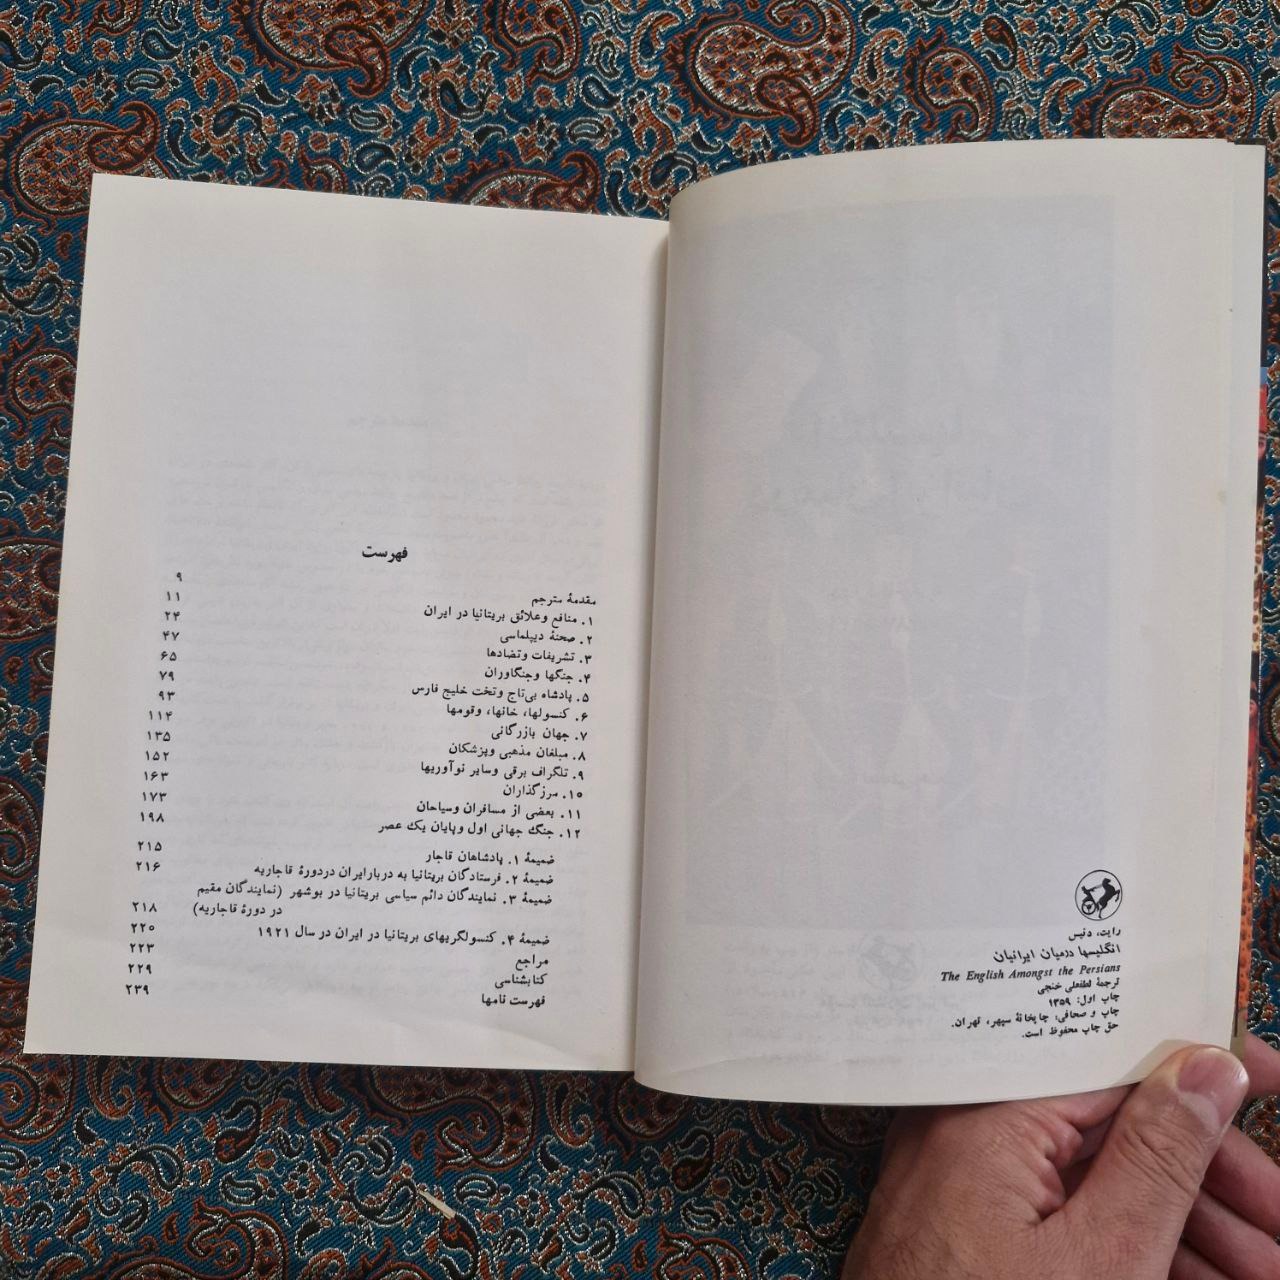 رایت، دنیس
انگلیسها درمیان ایرانیان
The English Amongst the Persians
ترجمهٔ لطفعلی خنجی
چاپ اول: ۱۳۵۹
چاپ و صحافی: چاپخانهٔ سپهر، تهران.
حق چاپ محفوظ است.
فهرست
مقدمهٔ مترجم ۹
۱. منافع وعلائق بریتانیا در ایران ۱۱
۲. صحنهٔ دیپلماسی ۲۴
۳. تشریفات وتضادها ۴۷
۴. جنگها وجنگاوران ۶۵
۵. پادشاه بی‌تاج وتخت خلیج فارس ۷۹
۶. کنسولها، خانها، وقومها ۹۳
۷. جهان بازرگانی ۱۱۴
۸. مبلغان مذهبی وپزشکان ۱۳۵
۹. تلگراف برقی وسایر نوآوریها ۱۵۲
۱۰. مرزگذاران ۱۶۳
۱۱. بعضی از مسافران وسیاحان ۱۷۳
۱۲. جنگ جهانی اول وپایان یک عصر ۱۹۸
ضمیمهٔ ۱. پادشاهان قاجار ۲۱۵
ضمیمهٔ ۲. فرستادگان بریتانیا به دربارایران دردورهٔ قاجاریه ۲۱۶
ضمیمهٔ ۳. نمایندگان دائم سیاسی بریتانیا در بوشهر (نمایندگان مقیم
در دورهٔ قاجاریه) ۲۱۸
ضمیمهٔ ۴. کنسولگریهای بریتانیا در ایران در سال ۱۹۲۱ ۲۲۰
مراجع ۲۲۳
کتابشناسی ۲۲۹
فهرست نامها ۲۳۹